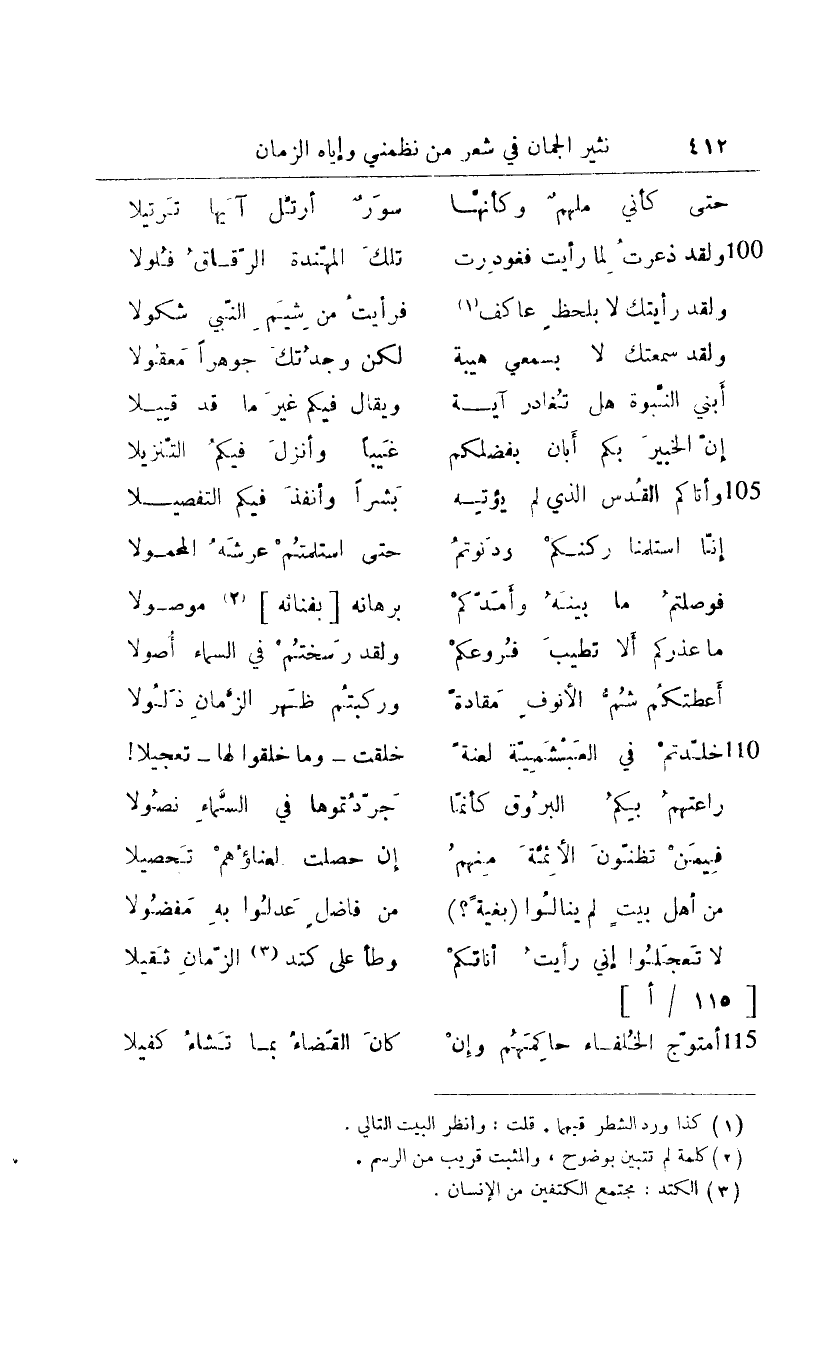 ٤١٢ نثير الجمان في شعر من نظمني وإياه الزمان
حتى كأني ملهمٌ وكأنهّـا سورٌ أرتّل آيَها تَرتيلا
100 ولقد ذعرتُ لِما رأيت فغودِرت تلكَ المهنّدة الرّقـاقُ فُلولا
ولقد رأيتك لا بلحظٍ عاكف(١) فرأيتُ من شِيَمِ النّبي شكولا
ولقد سمعتك لا بسمعي هيبة لكن وجدْتُكَ جوهراً مَعقُولا
أبني النّبوة هل تُغادر آيـــة ويقال فيكم غيرَ ما قد قيـلا
إنّ الخبيرَ بكم أبان بفضلكم غَيباً وأنزلَ فيكمُ التّنزيلا
105 وأتاكم القُدس الذي لم يؤتيـه بَشراً وأنفذَ فيكم التفصيـلا
إنّا استلمنا ركنـكمْ ودَنوتمُ حتى استلمتُمْ عرشَهُ المحمـولا
فوصلتمُ ما بينـهُ وأمَدّكمْ برهانه [ بفنائه ] (٢) موصـولا
ما عذركم ألا تطيبَ فُروعكمْ ولقد رَسختُمْ في السماء أصولا
أعطتكُم شُمُّ الأنوفِ مَقادةً وركبتُم ظَهر الزّمانِ ذَلُولا
110 خلّدتمْ في العَبْشَمِيّة لعنةً خلقت ـ وما خلقوا لها ـ تعجيلا!
راعتهمُ بيكمُ البرُوق كأنمّا جَرّدْتموها في السّماءِ نصُولا
فيمَنْ تظنّونَ الأئمّةَ مِنهمُ إن حصلت لعناؤهمْ تَحصيلا
من أهل بيتٍ لم ينالُوا (بغية؟) من فاضلٍ عَدلُوا بهِ مَفضُولا
لا تَعجَلُوا إني رأيتُ أناتكمْ وطأ على كتد (٣) الزّمانِ ثقَيلا
[ ١١٥ / أ ]
115 أمتوّج الخُلفـاء حاكِمَهُم وإنْ كانَ القَضاءُ بمـا تَشاءُ كفيلا
(١) كذا ورد الشطر قيهما . قلت : وانظر البيت التالي .
(٢) كلمة لم تتبين بوضوح ، والمثبت قريب من الرسم .
(٣) الكتد : مجتمع الكتفين من الإنسان .